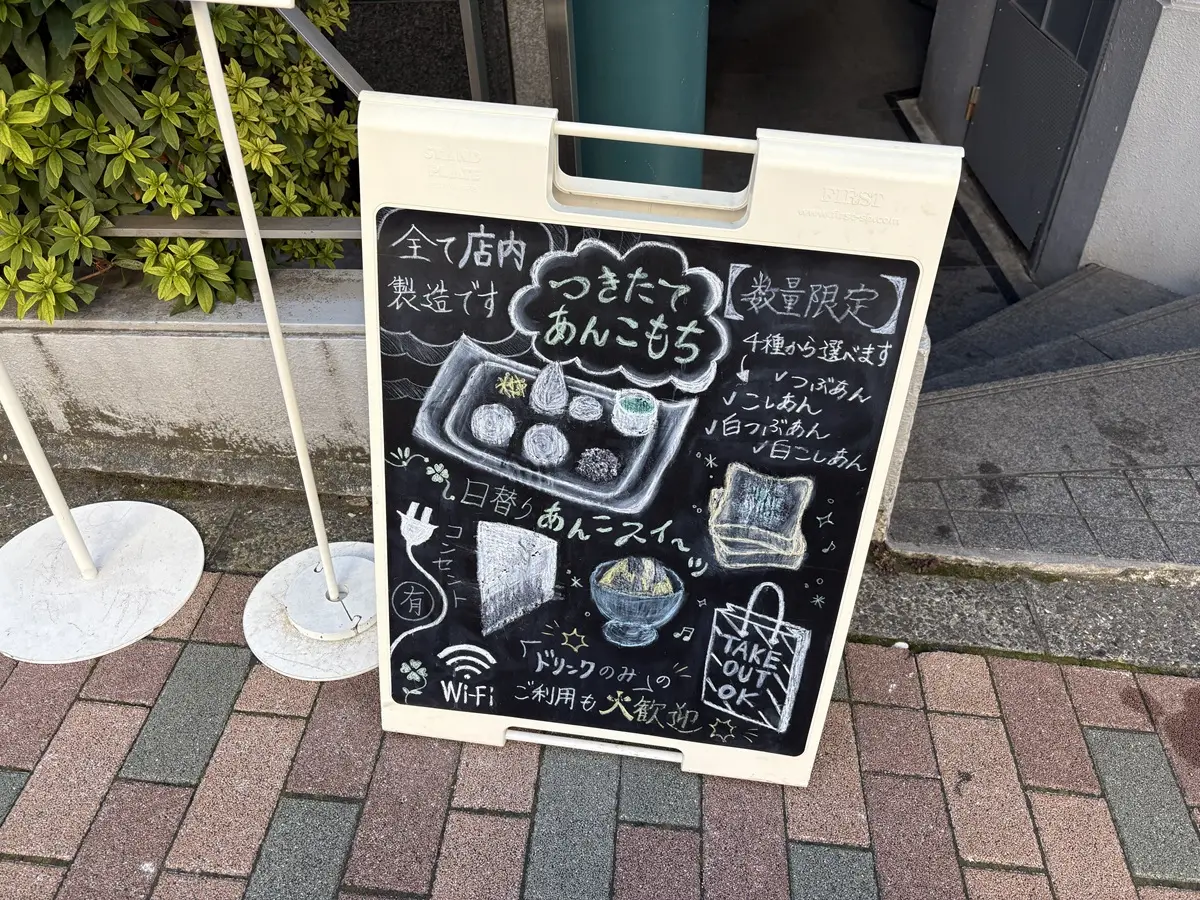 全て店内
製造です
つきたて
あんこもち
【数量限定】
4種から選べます
✓つぶあん
✓こしあん
✓白つぶあん
✓白こしあん
日替りあんこスイーツ
コンセント
有
Wi-Fi
「ドリンクのみ」の
ご利用も大歓迎
TAKE
OUT
OK
FIRST